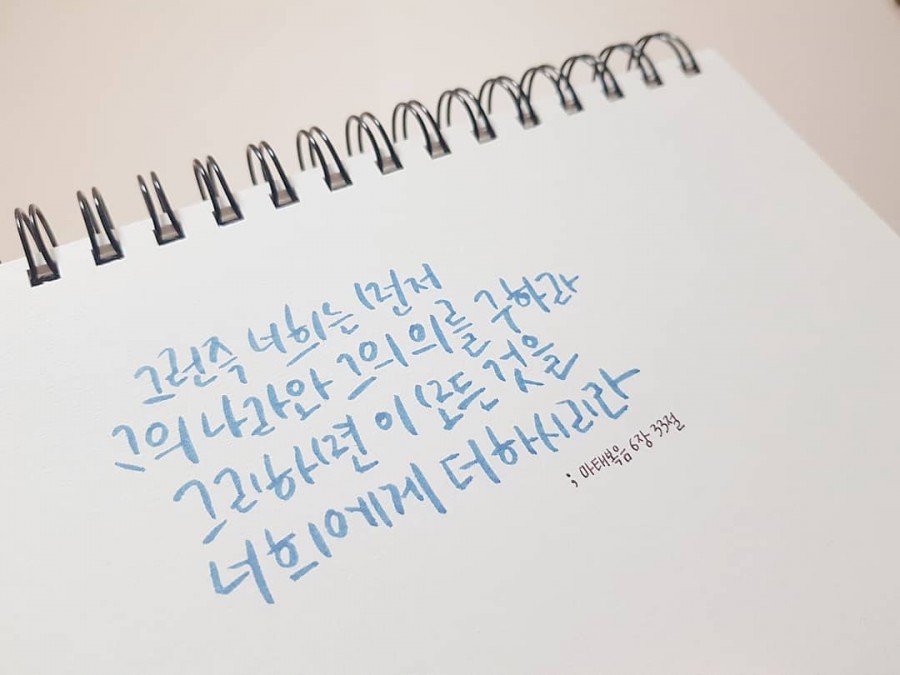 그런즉 너희는 먼저
그의 나라와 그의 의를 구하라
그리하면 이 모든 것을
너희에게 더하시리라
; 마태복음 6장 33절